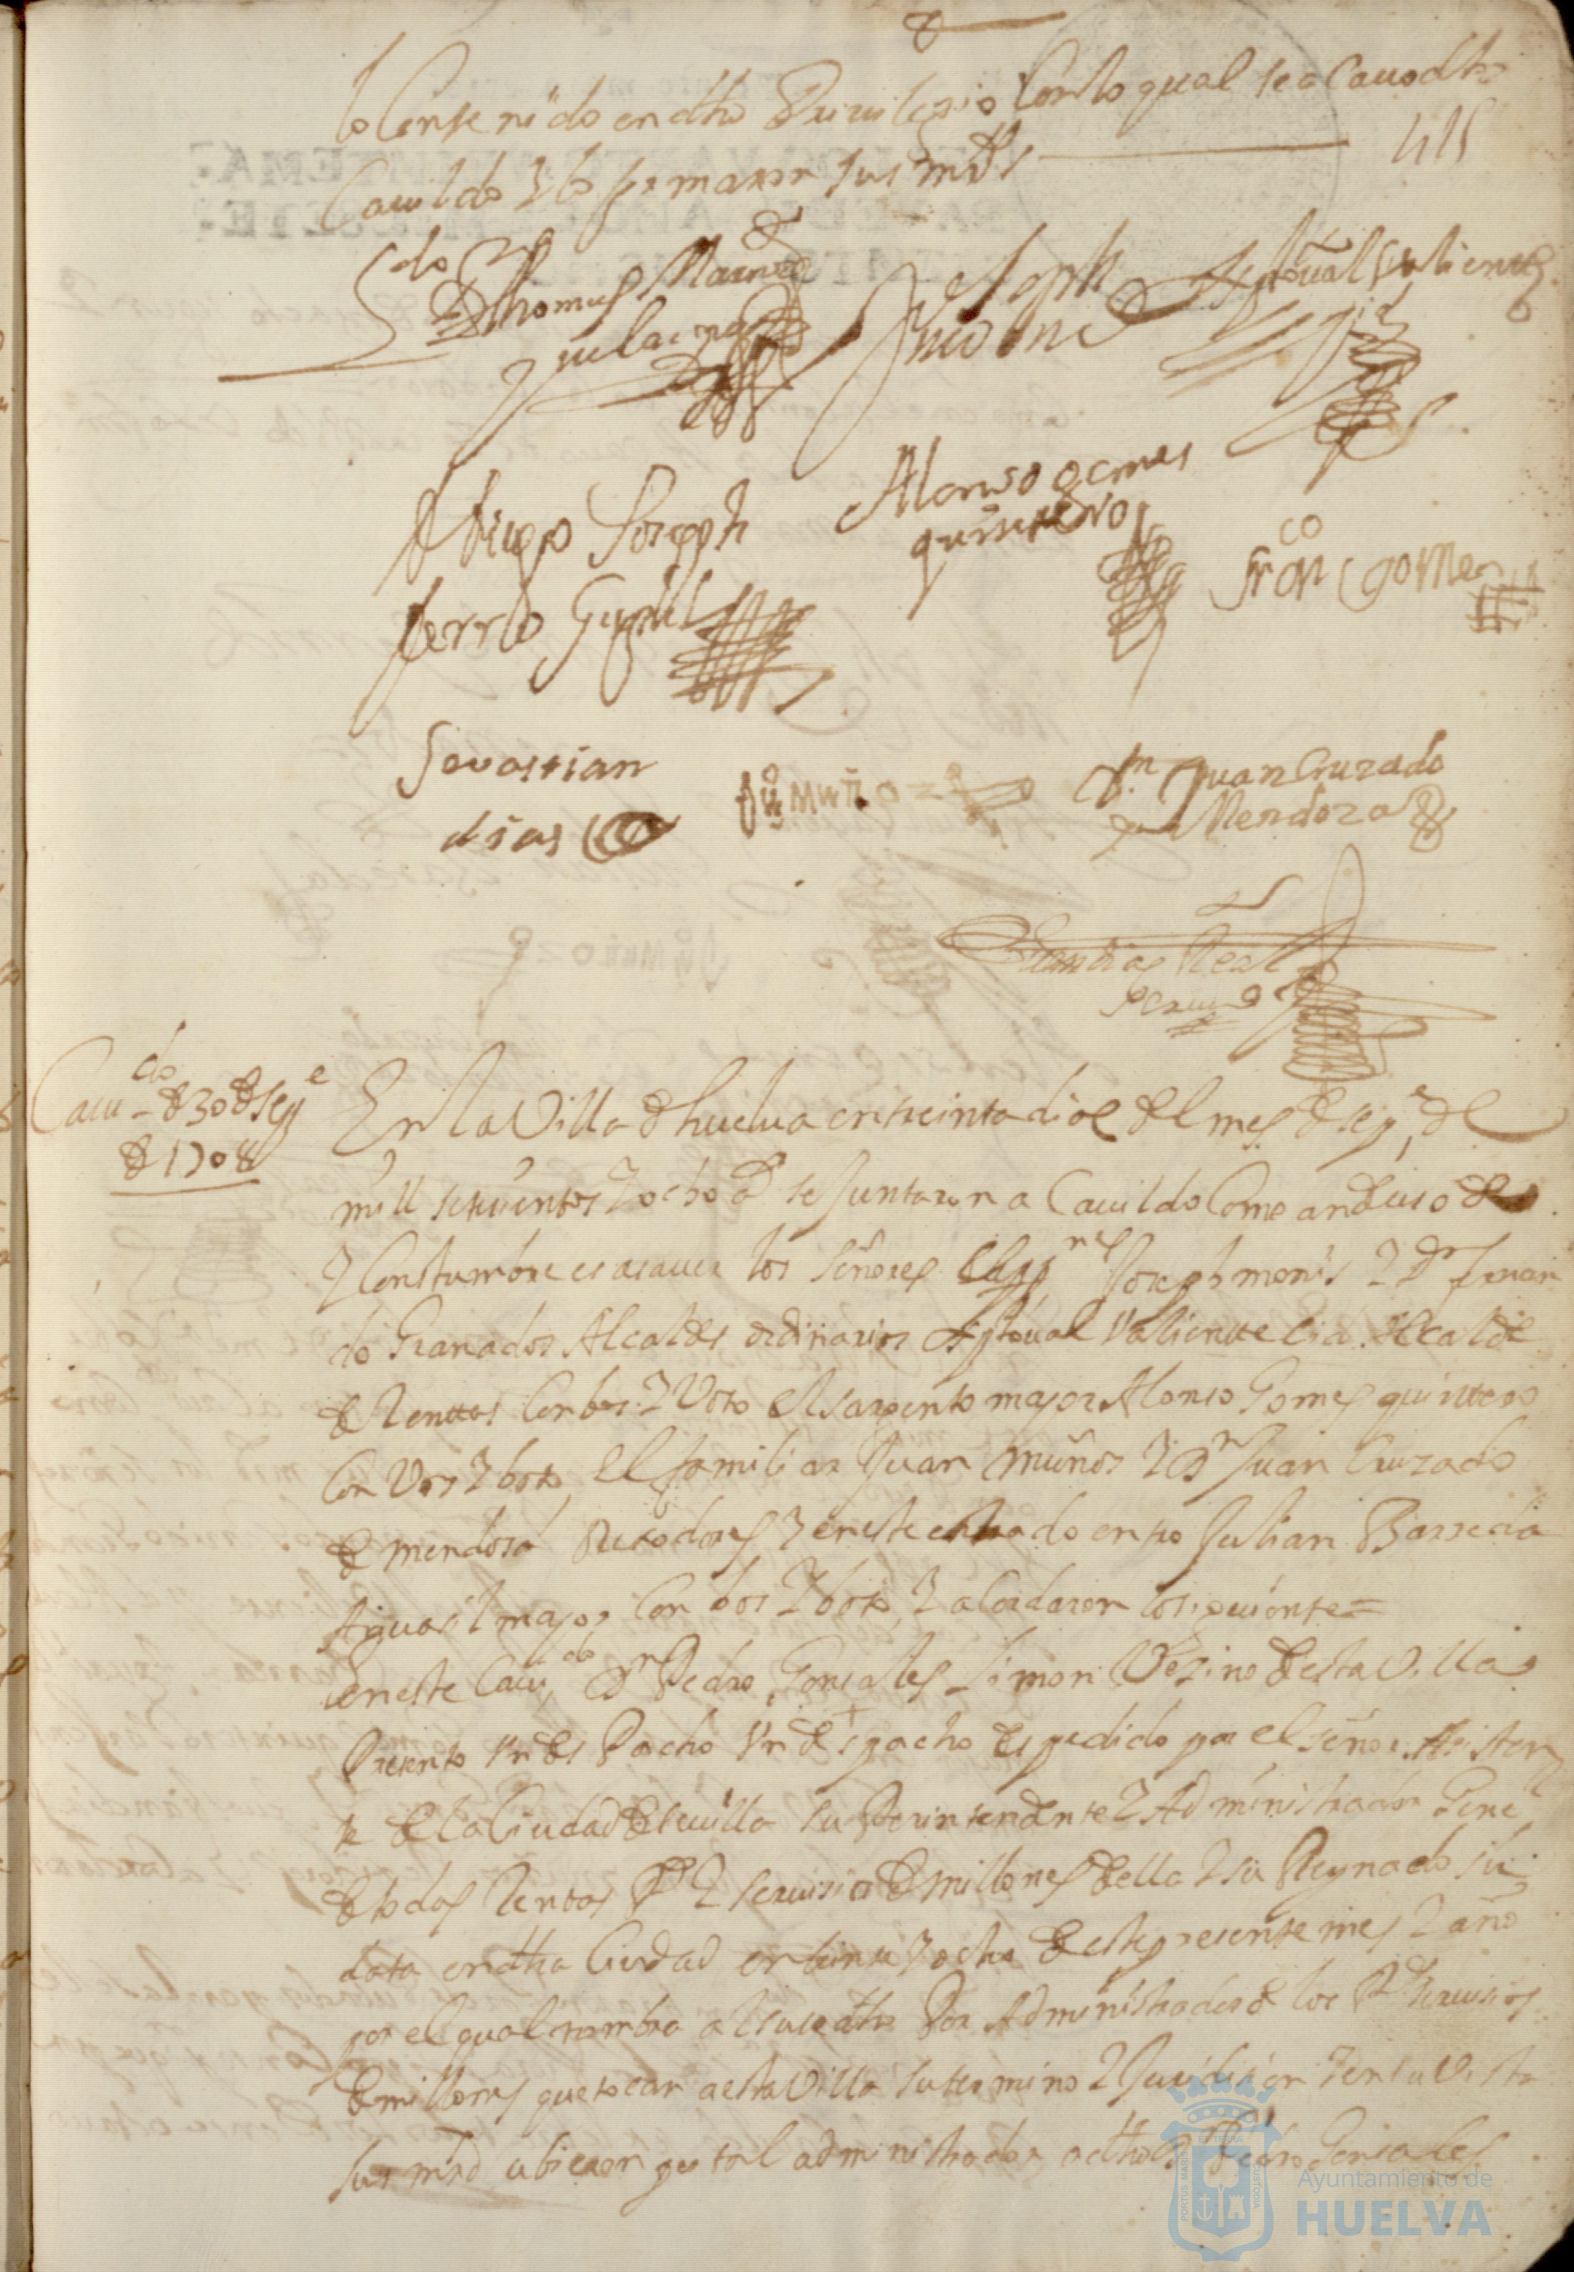 lo Contenido en dho Priuilexio Con lo qual se a Cauo dho
Cauildo y lo firmaron sus mrds
115
Ldo Dn Thomas
Joseph
Xptoual Valiente
Diego Joseph
Alonso gomes
quintero
franco gomes
Sevastian
dias
Ju Muñoz
Dn Juan Cruzado
de Mendoza
Diaz Real
Caudo de 30 de Sepe
de 1708
En la Villa de huelua en treinta dias del mes de sepe de
mill setesientos y ocho as se Juntaron a Cauildo Como an de uso
y Constumbre es asauer los señores Cappnes Joseph monis y Dn fernan
do Granados Alcaldes ordinarios Xptoual Valiente Alcalde
de Rentas Con bos y Voto el sargento mayor Alonso Gomes quintero
Con Vos y boto el familiar Juan Muños y Dn Juan Cruzado
de mendosa Rexidores y en este estado entro Julian Barreda
Aguasil mayor Con bos y boto y acordaron lo siguiente =
en este Caudo Dn Pedro Gonsales Simon Vezino de esta Villa
Presento Vn des Pacho Vn despacho espedido por el señor Asisten
te de la Ciudad de seuilla superintendente y Administrador Gene
de todas Rentas Rs y seruisios de millones de ella y su Reynado su
data en dha Ciudad en beinte y ocho de este presente mes y año
por el qual nombra al suso dho Por Administrador de los Rs seruisios
de millones que tocan a esta Villa su termino y Juridision y en su Vista
sus mrds ubieron por tal administrador a dho Dn Pedro Gonsales
Ayuntamiento de
HUELVA